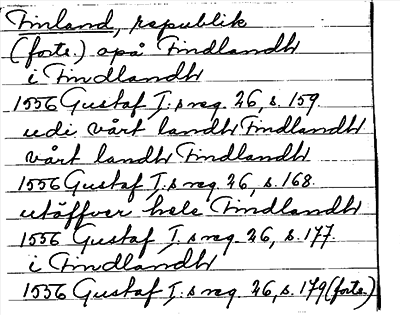 Finland, republik
(forts.) opå Findlandh
i Findlandh
1556 Gustaf I:s reg. 26, s. 159
udi vårt landh Findlandh
vårt landh Findlandh
1556 Gustaf I.s reg. 26, s. 168.
utöffver hele Findlandh
1556 Gustaf I.s reg. 26, s. 177.
i Findlandh
1556 Gustaf I:s reg. 26, s. 179 (forts.)